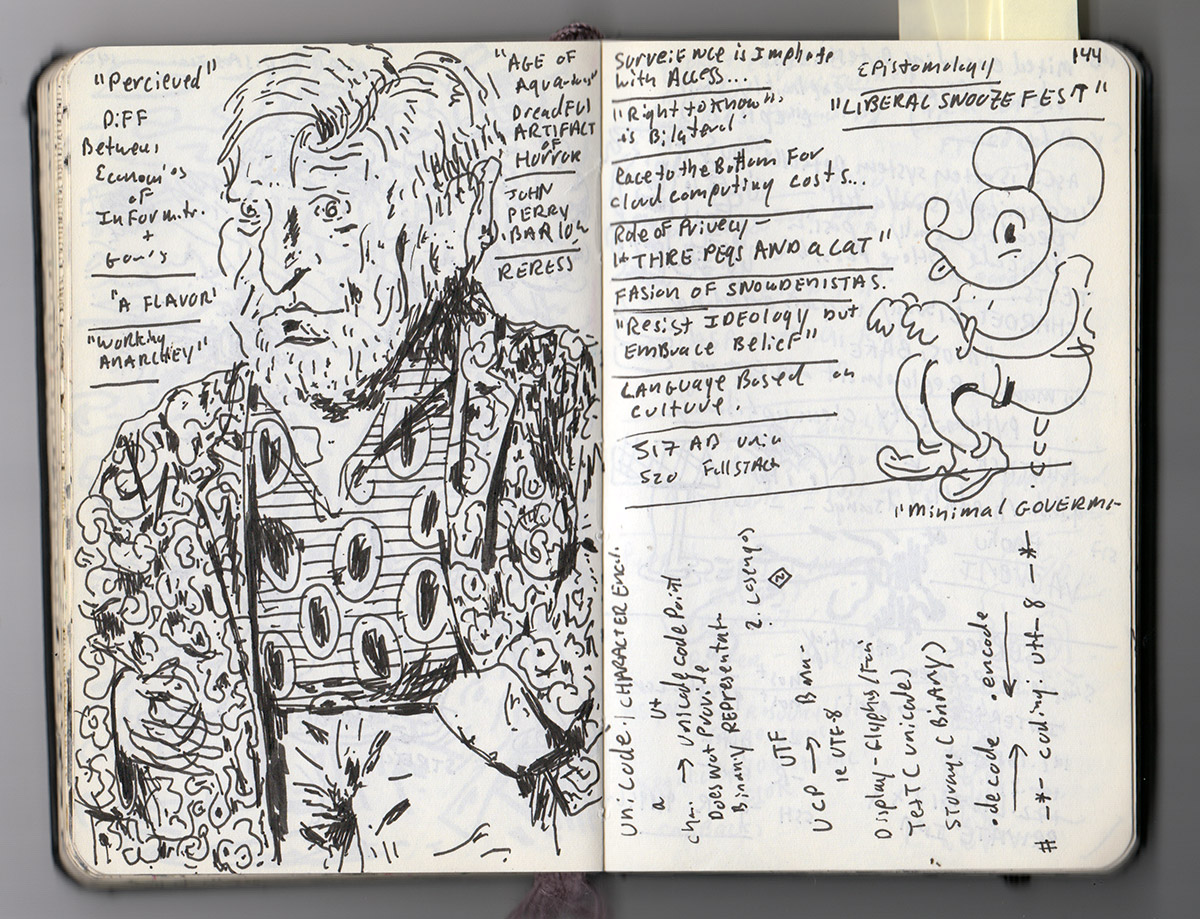 "Percieved"
Diff
Between
Economi's
of
Informatr.
+
Gov's
"A FLAVOR'
"Working
ANARCHEY"
"AGE OF
DreadFul
ARTIFACT
OF
Horror
JOHN
PERRY
BARlow
RERESS
with Access...
"Right to Know".
is Bilateral
Race to the Bottom For
cloud computing costs...
Role of Privecy
"THRE PEGS AND a CAT"
FASION OF SNOWDENISTAS.
"Resist IDEology but
EmBrace Belief"
LANGUAGE BASED on
culture.
517 AD
520 Full STACK
144
Epistomology
"LIBERAL SNOOZE FEST"
"Minimal GOVERM-
UNiCode / CHARACTER Encd.
a ut
cha. → Unicode code Point
Does not Provide
Binary REPresentatn
UCP → UTF
ie UTF8
Display - Glyphs/
Text (unicode)
Storage (BinAry)
decode encode
# -*- coding: utf-8 -*-